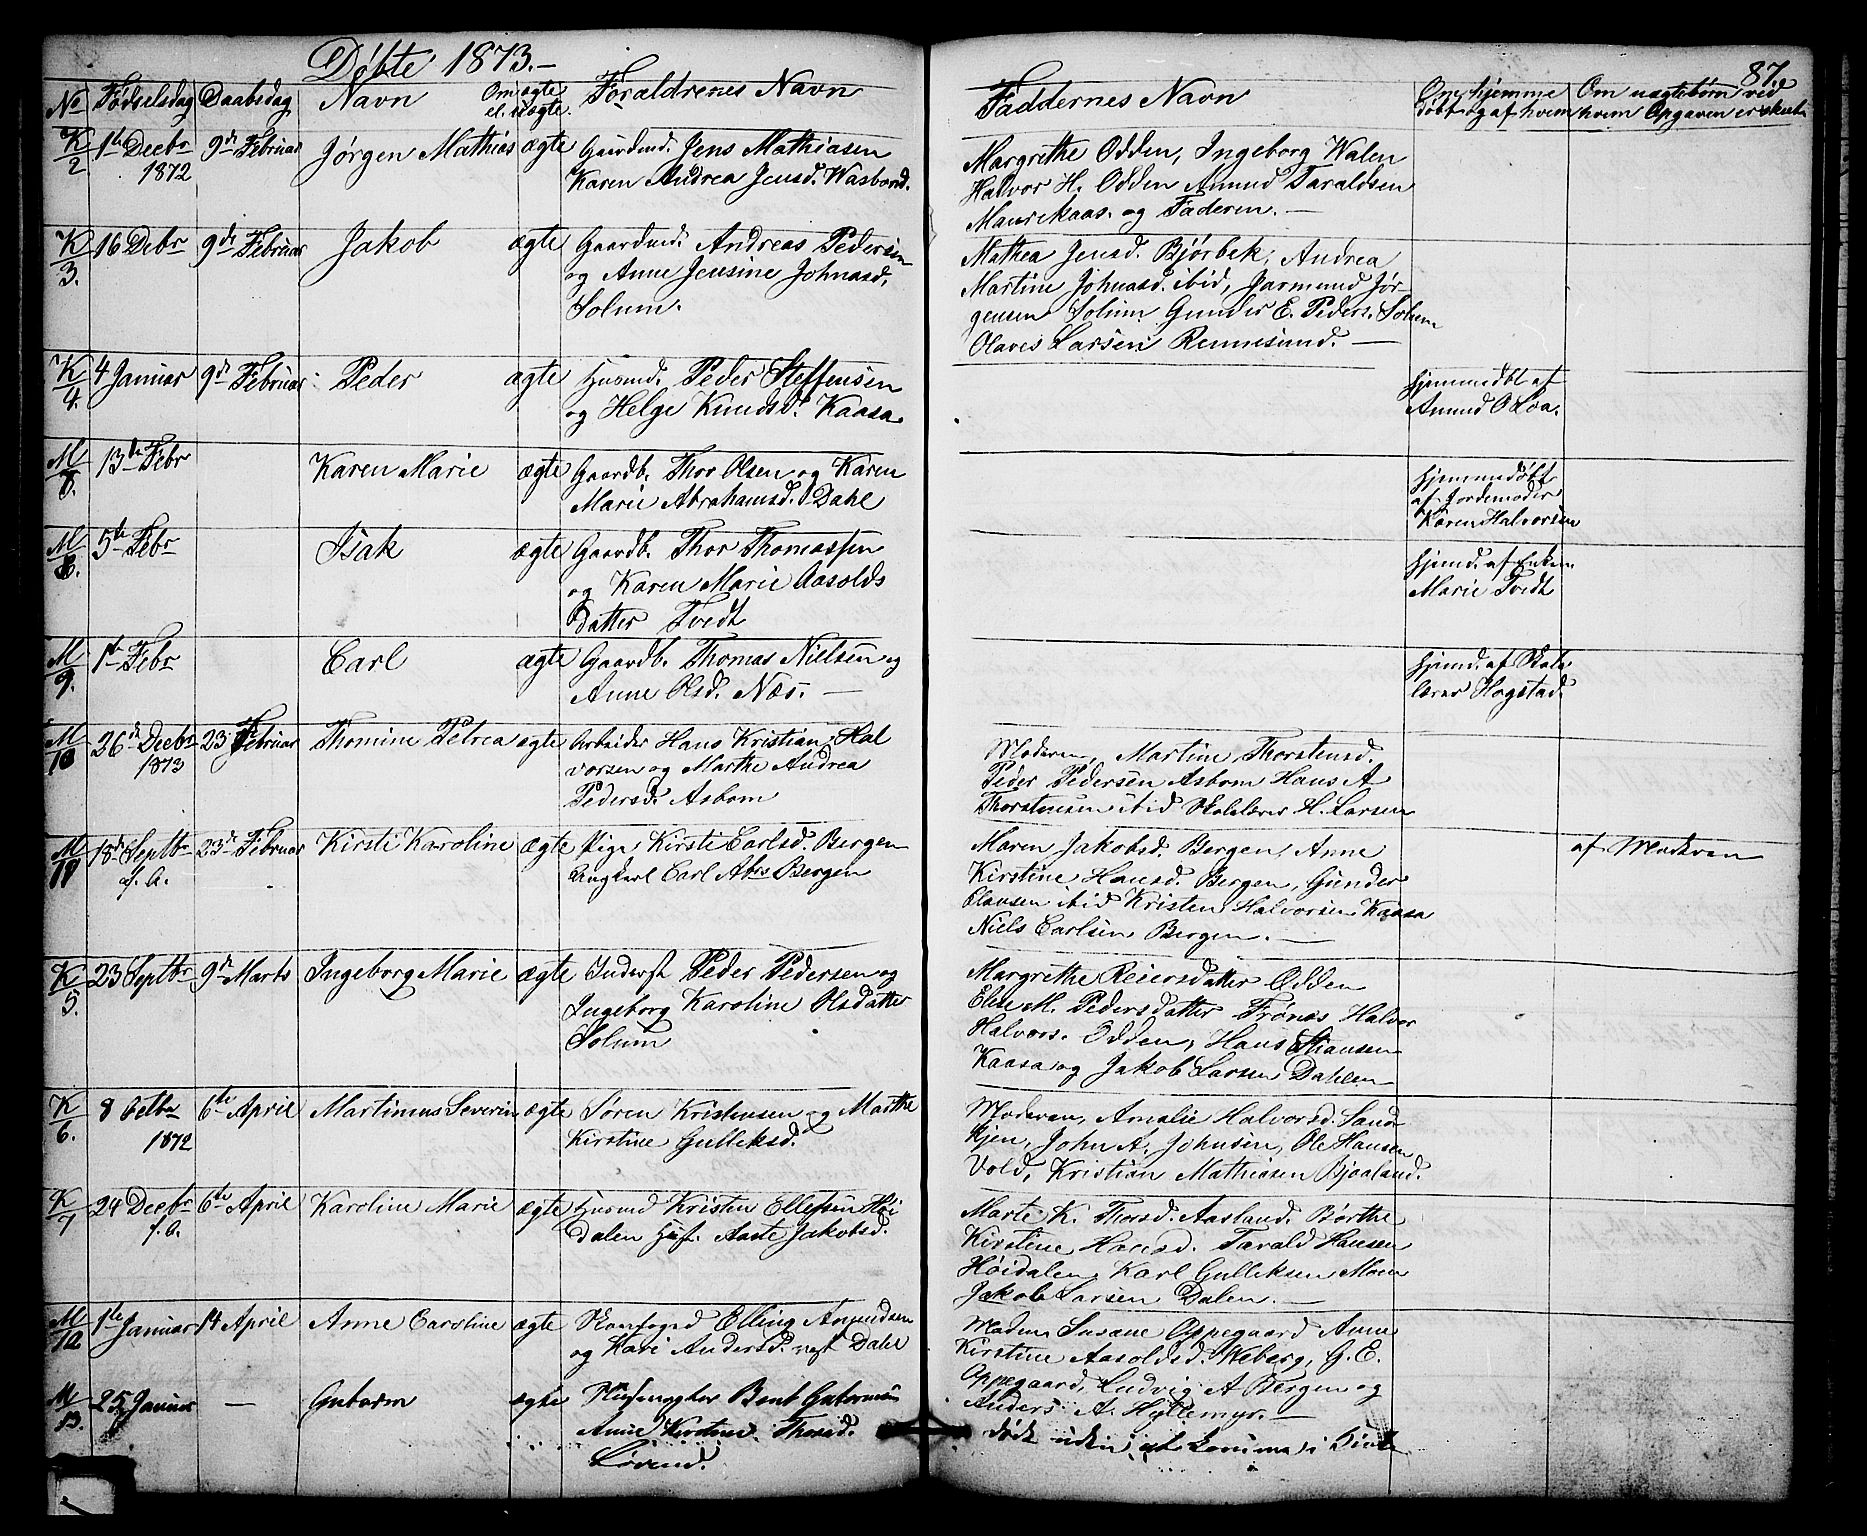 Døbte 1873.-
87.
No Fødselsdag Daabsdag Navn Om ægte el. uægte. Forældrenes Navn Faddernes Navn Om hjemmedøbt og af hvem Om uægtebørn ved hvem Opgaven er skeet
K/2 1ste Decbr 1872 9de Februar Jørgen Mathias ægte Gaardmd. Jens Mathiasen
Karen Andrea Jensd. Wasbond.
Margrethe Odden, Ingeborg Walen
Halvor H. Odden Amund Taraldsen
og Faderen. —
K/3. 16 Debr 9de Februar Jakob ægte Gaardmd. Andreas Pedersen
og Anne Jensine Johnasd.
Solum.
Mathea Jensd. Bjørbek, Andrea
Martine Johnasd. ibid, Jarmund Jør-
gensen Solum Gunder E. Peders. Solum
Olaves Larsen Rennesund. —
K/4. 4 Januar 9de Februar Peder ægte Husmd. Peder Steffensen
og Helge Knudsd. Kaasa
hjemmedbt af
Amund O Loa.
M/7. 13de Febr Karen Marie ægte Gaardb. Thor Olsen og Karen
Marie Abrahamsd. Dahl
hjemmedøbt
af Jordemoder
Karen Halvorsen
M/8. 5te Febr Isak ægte Gaardb. Thor Thomassen
og Karen Marie Aasolds
datter Tvedt
hjemd. af Enken
Marie Tvedt
M/9. 1ste Febr Carl ægte Gaardb. Thomas Nielsen og
Anne Olsd. Næs. —
hjemd. af Skole
lærer Hogstad.
M/10 26de Decbr 1873 23 Februar Thomine Petrea ægte Arbeider Hans Kristian Hal
vorsen og Marthe Andrea
Pedersd. Asbom
Moderen, Martine Thorstensd.
Peder Pedersen Asbom Hans A
Thorstensen ibid Skolelærer H. Larsen
M/11 18de Septbr f. A. 23de Februar Kirsti Karoline ægte Pige Kirsti Carlsd. Bergen
Ungkarl Carl Abrs Bergen
Maren Jakobsd. Bergen, Anne
Kirstine Hansd. Bergen, Gunder
Olausen ibid Kristen Halvorsen Kaasa
Niels Carlsen Bergen. —
af Moderen
K/5. 23 Septbr 9de Marts Ingeborg Marie ægte Inderst Peder Pedersen og
Ingeborg Karoline Olsdatter
Solum
Margrethe Reiersdatter Odden
Elise M. Pedersdatter Frønæs Halvor
Halvors. Odden, Hans Hansen
Kaasa og Jakob Larsen Dahlen
K/6. 8 Octbr 1872 6te April Martinus Severin ægte Søren Kristensen og Marthe
Kirstine Gulleksd.
Moderen, Amalie Halvorsd. Sand-
kjen, John A. Johnsen, Ole Hansen
Vold, Kristian Mathiasen Bjaaland.
K/7 24 Decbr f. A. 6te April Karoline Marie ægte Husmd Kristen Ellefsen Høi
dalen Huf. Aaste Jakobsd.
Marte K. Thorsd. Aasland. Børthe
Kirstine Hansd. Tarald Hansen
Høidalen Karl Gulleksen Moen
Jakob Larsen Dalen. —
M/12 1ste Januar 14 April Anne Caroline ægte Skovfoged Elling Amundsen
og Kari Andersd. Dahl
Madm Susane Oppegaard Anne
Kirstine Aasoldsd. Weberg, G. E.
Oppegaard, Ludvig A Bergen og
Anders A. Hyllemyr. —
M/13. 25 Januar — Gutorm ægte Bent Gutormsen
Anne Kirstine Thorsd.
død uden at komme i Kirke